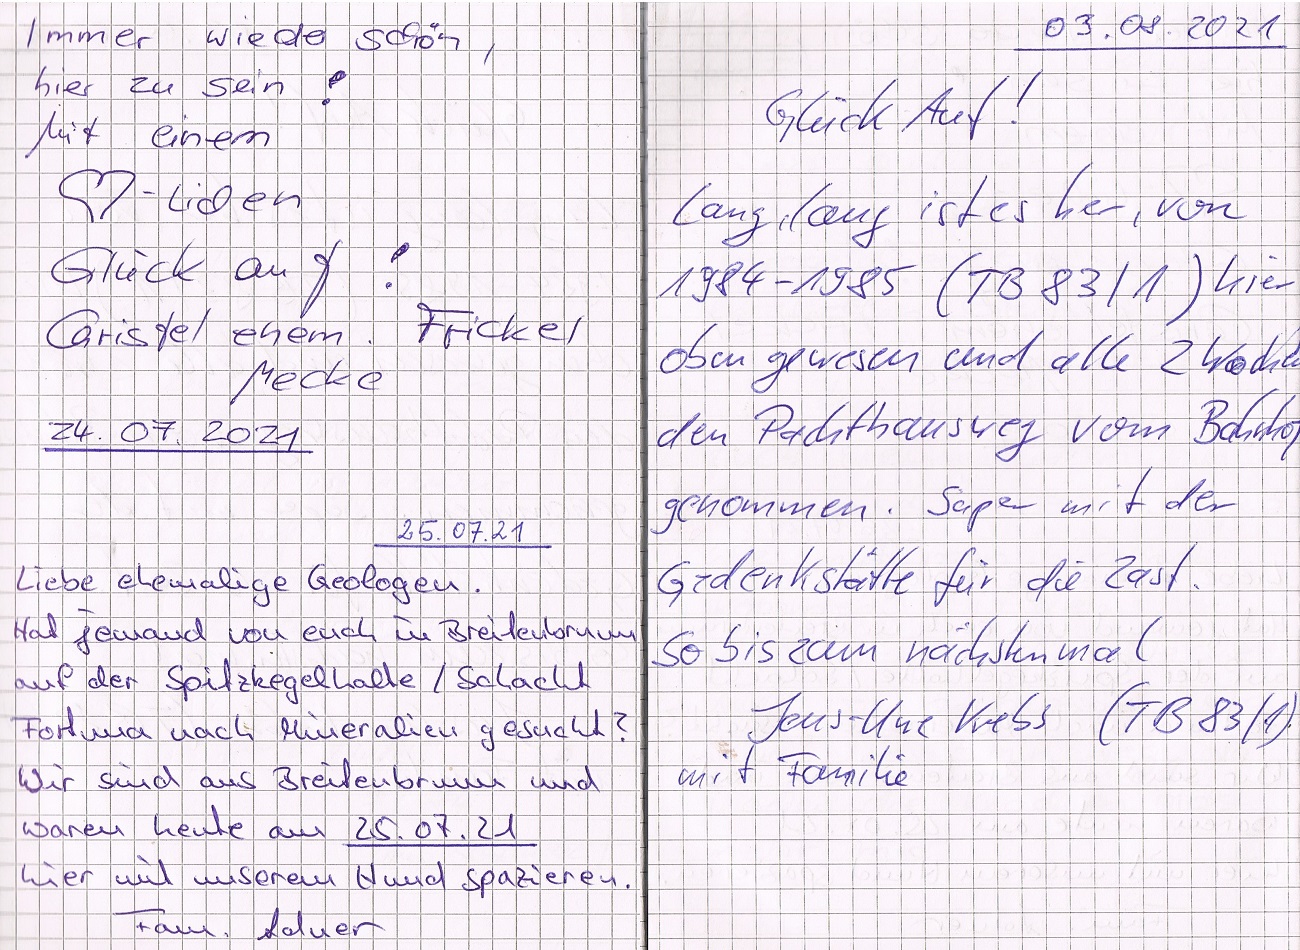 Immer wieder schön,
hier zu sein!
Mit einem
♡-lichen
Glück auf!
Christel ehem. Frickel
Mecke
24.07.2021
25.07.21
Liebe ehemalige Geologen.
Hat jemand von euch in Breitenbrunn
auf der Spitzkegelhalde / Schacht
Fortuna nach Mineralien gesucht?
Wir sind aus Breitenbrunn und
waren heute am 25.07.21
hier mit unserem Hund spazieren.
Fam.
03.08.2021
Glück Auf!
Lang, lang ist es her, von
1984-1985 (TB 83/1) hier
oben gewesen und alle 2 Wochen
den Pachthausweg vom Bahnhof
genommen. Super mit der
Gedenkstätte für die Zast.
So bis zum nächsten mal
Jens-Uwe Krebs (TB 83/1)
mit Familie